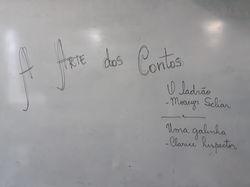 A ARTE dos Contos
O ladrão
- Moacyr Scliar
Uma galinha
- Clarice Lispector